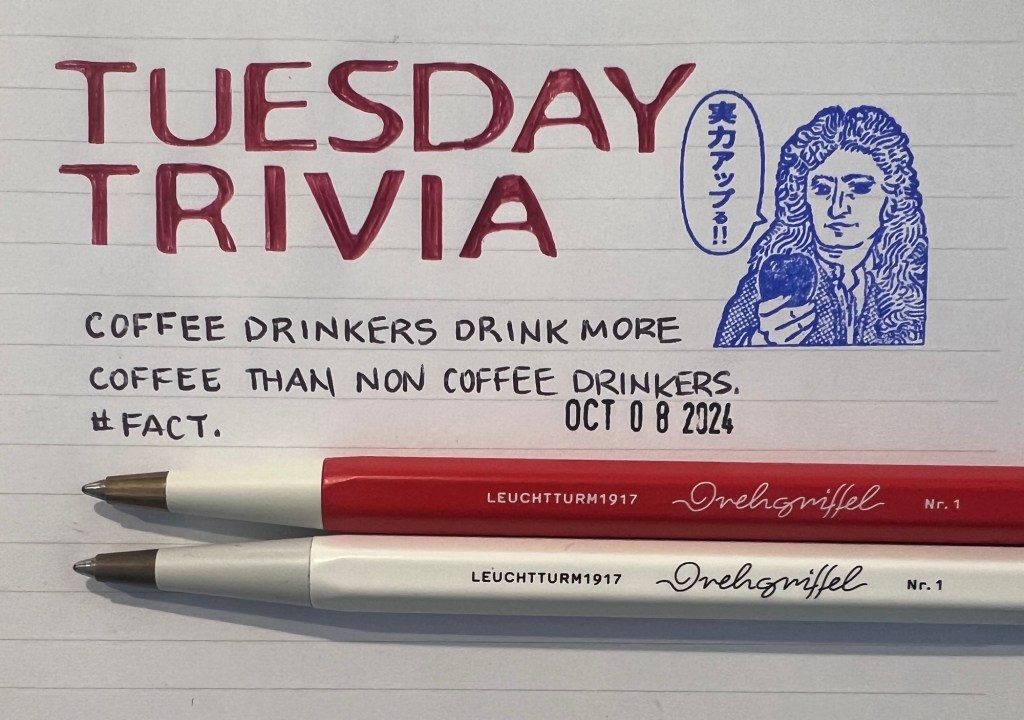 TUESDAY
TRIVIA
実力アップる!!
COFFEE DRINKERS DRINK MORE
COFFEE THAN NON COFFEE DRINKERS.
#FACT.
OCT 08 2024
LEUCHTTURM1917 Drehgriffel Nr. 1
LEUCHTTURM1917 Drehgriffel Nr. 1